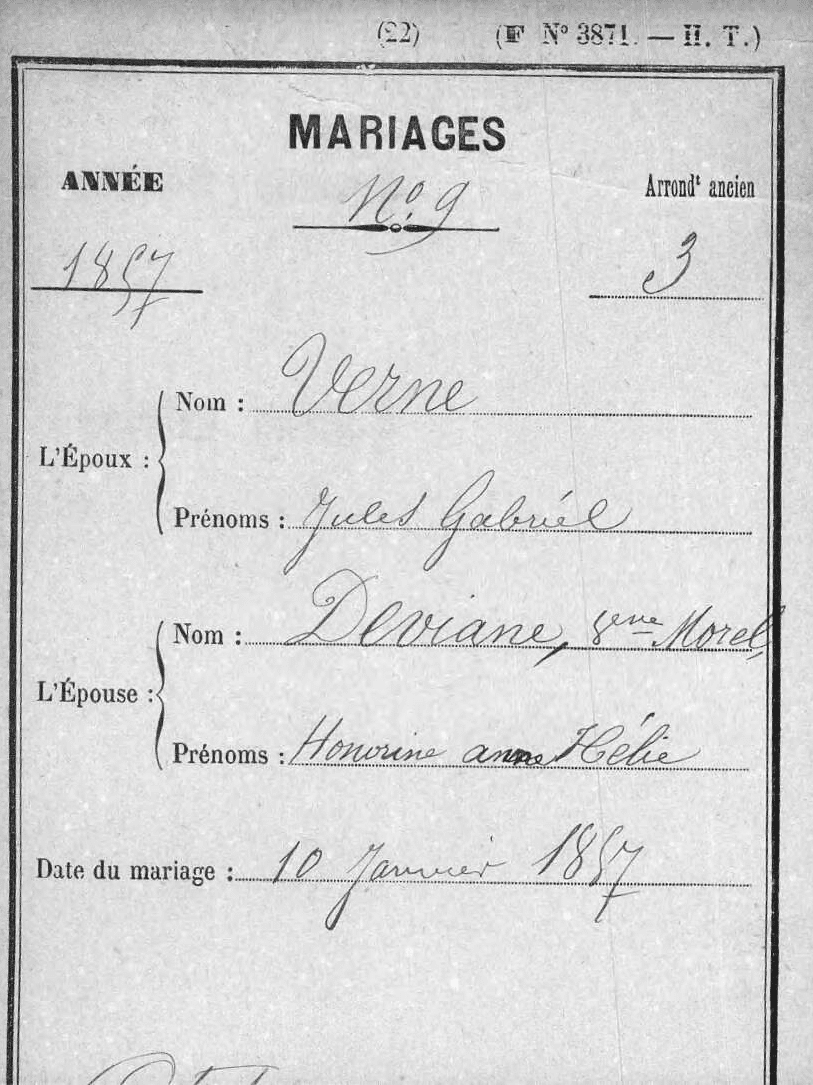 (22) (F Nº 3871. — H. T.)
MARIAGES
ANNÉE
Nº. 9
Arrondᵗ ancien
1857
3
Nom : Verne
L'Époux :
Prénoms : Jules Gabriel
Nom : Deviane, veuve Morel,
L'Épouse :
Prénoms : Honorine anne Hélie
Date du mariage : 10 Janvier 1857